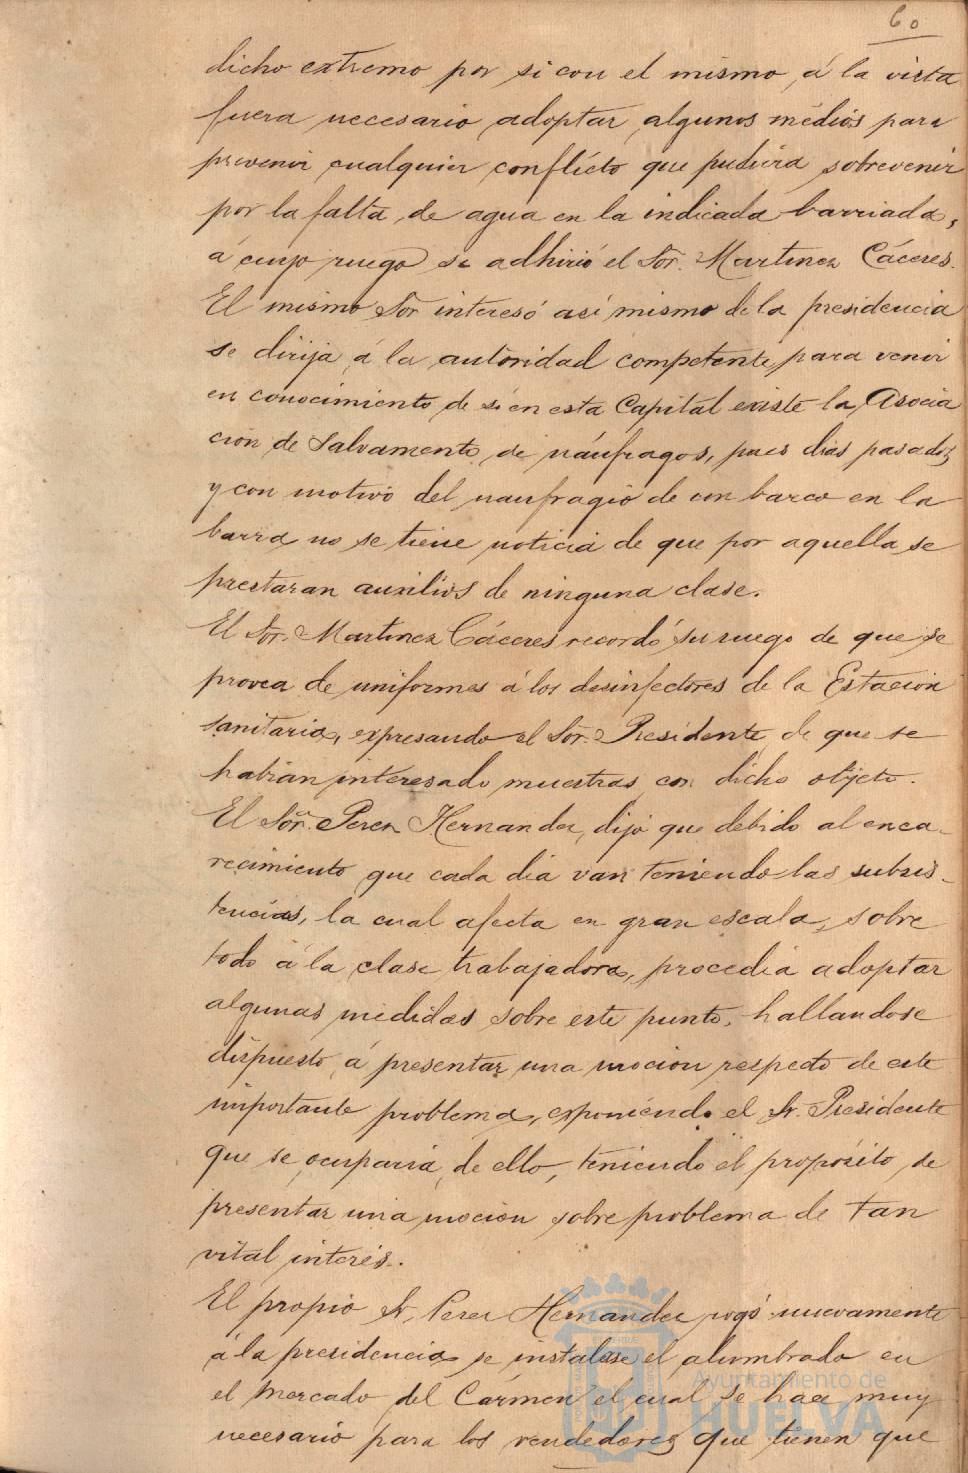 60
dicho extremo por si con el mismo, á la vista
fuera necesario adoptar algunos medios para
prevenir cualquier conflicto que pudiera sobrevenir
por la falta de agua en la indicada barriada,
á cuyo ruego se adhirió el Sor. Martinez Cáceres.
El mismo Sor interesó así mismo de la presidencia
se dirija á la autoridad competente, para venir
en conocimiento de si en esta Capital existe la Asocia
ción de Salvamento de náufragos, pues dias pasados
y con motivo del naufragio de un barco en la
barra no se tiene noticia de que por aquella se
prestaran auxilios de ninguna clase.
El Sor. Martinez Cáceres recordó su ruego de que se
provea de uniformes á los desinfectores de la Estación
sanitaria, expresando el Sor. Presidente de que se
habian interesado muestras con dicho objeto.
El Sor. Perez Hernandez, dijo que debido al enca-
recimiento que cada dia van teniendo las subsis-
tencias, la cual afecta en gran escala, sobre
todo á la clase trabajadora, procedia adoptar
algunas medidas sobre este punto, hallandose
dispuesto á presentar una mocion respecto de este
importante problema, exponiendo el Sr. Presidente
que se ocuparia de ello, teniendo el propósito de
presentar una mocion sobre problema de tan
vital interés.
El propio Sr. Perez Hernandez rogó nuevamente
á la presidencia se instalase el alumbrado en
el mercado del Carmen el cual se hace muy
necesario para los vendedores que tienen que
Ayuntamiento de
HUELVA